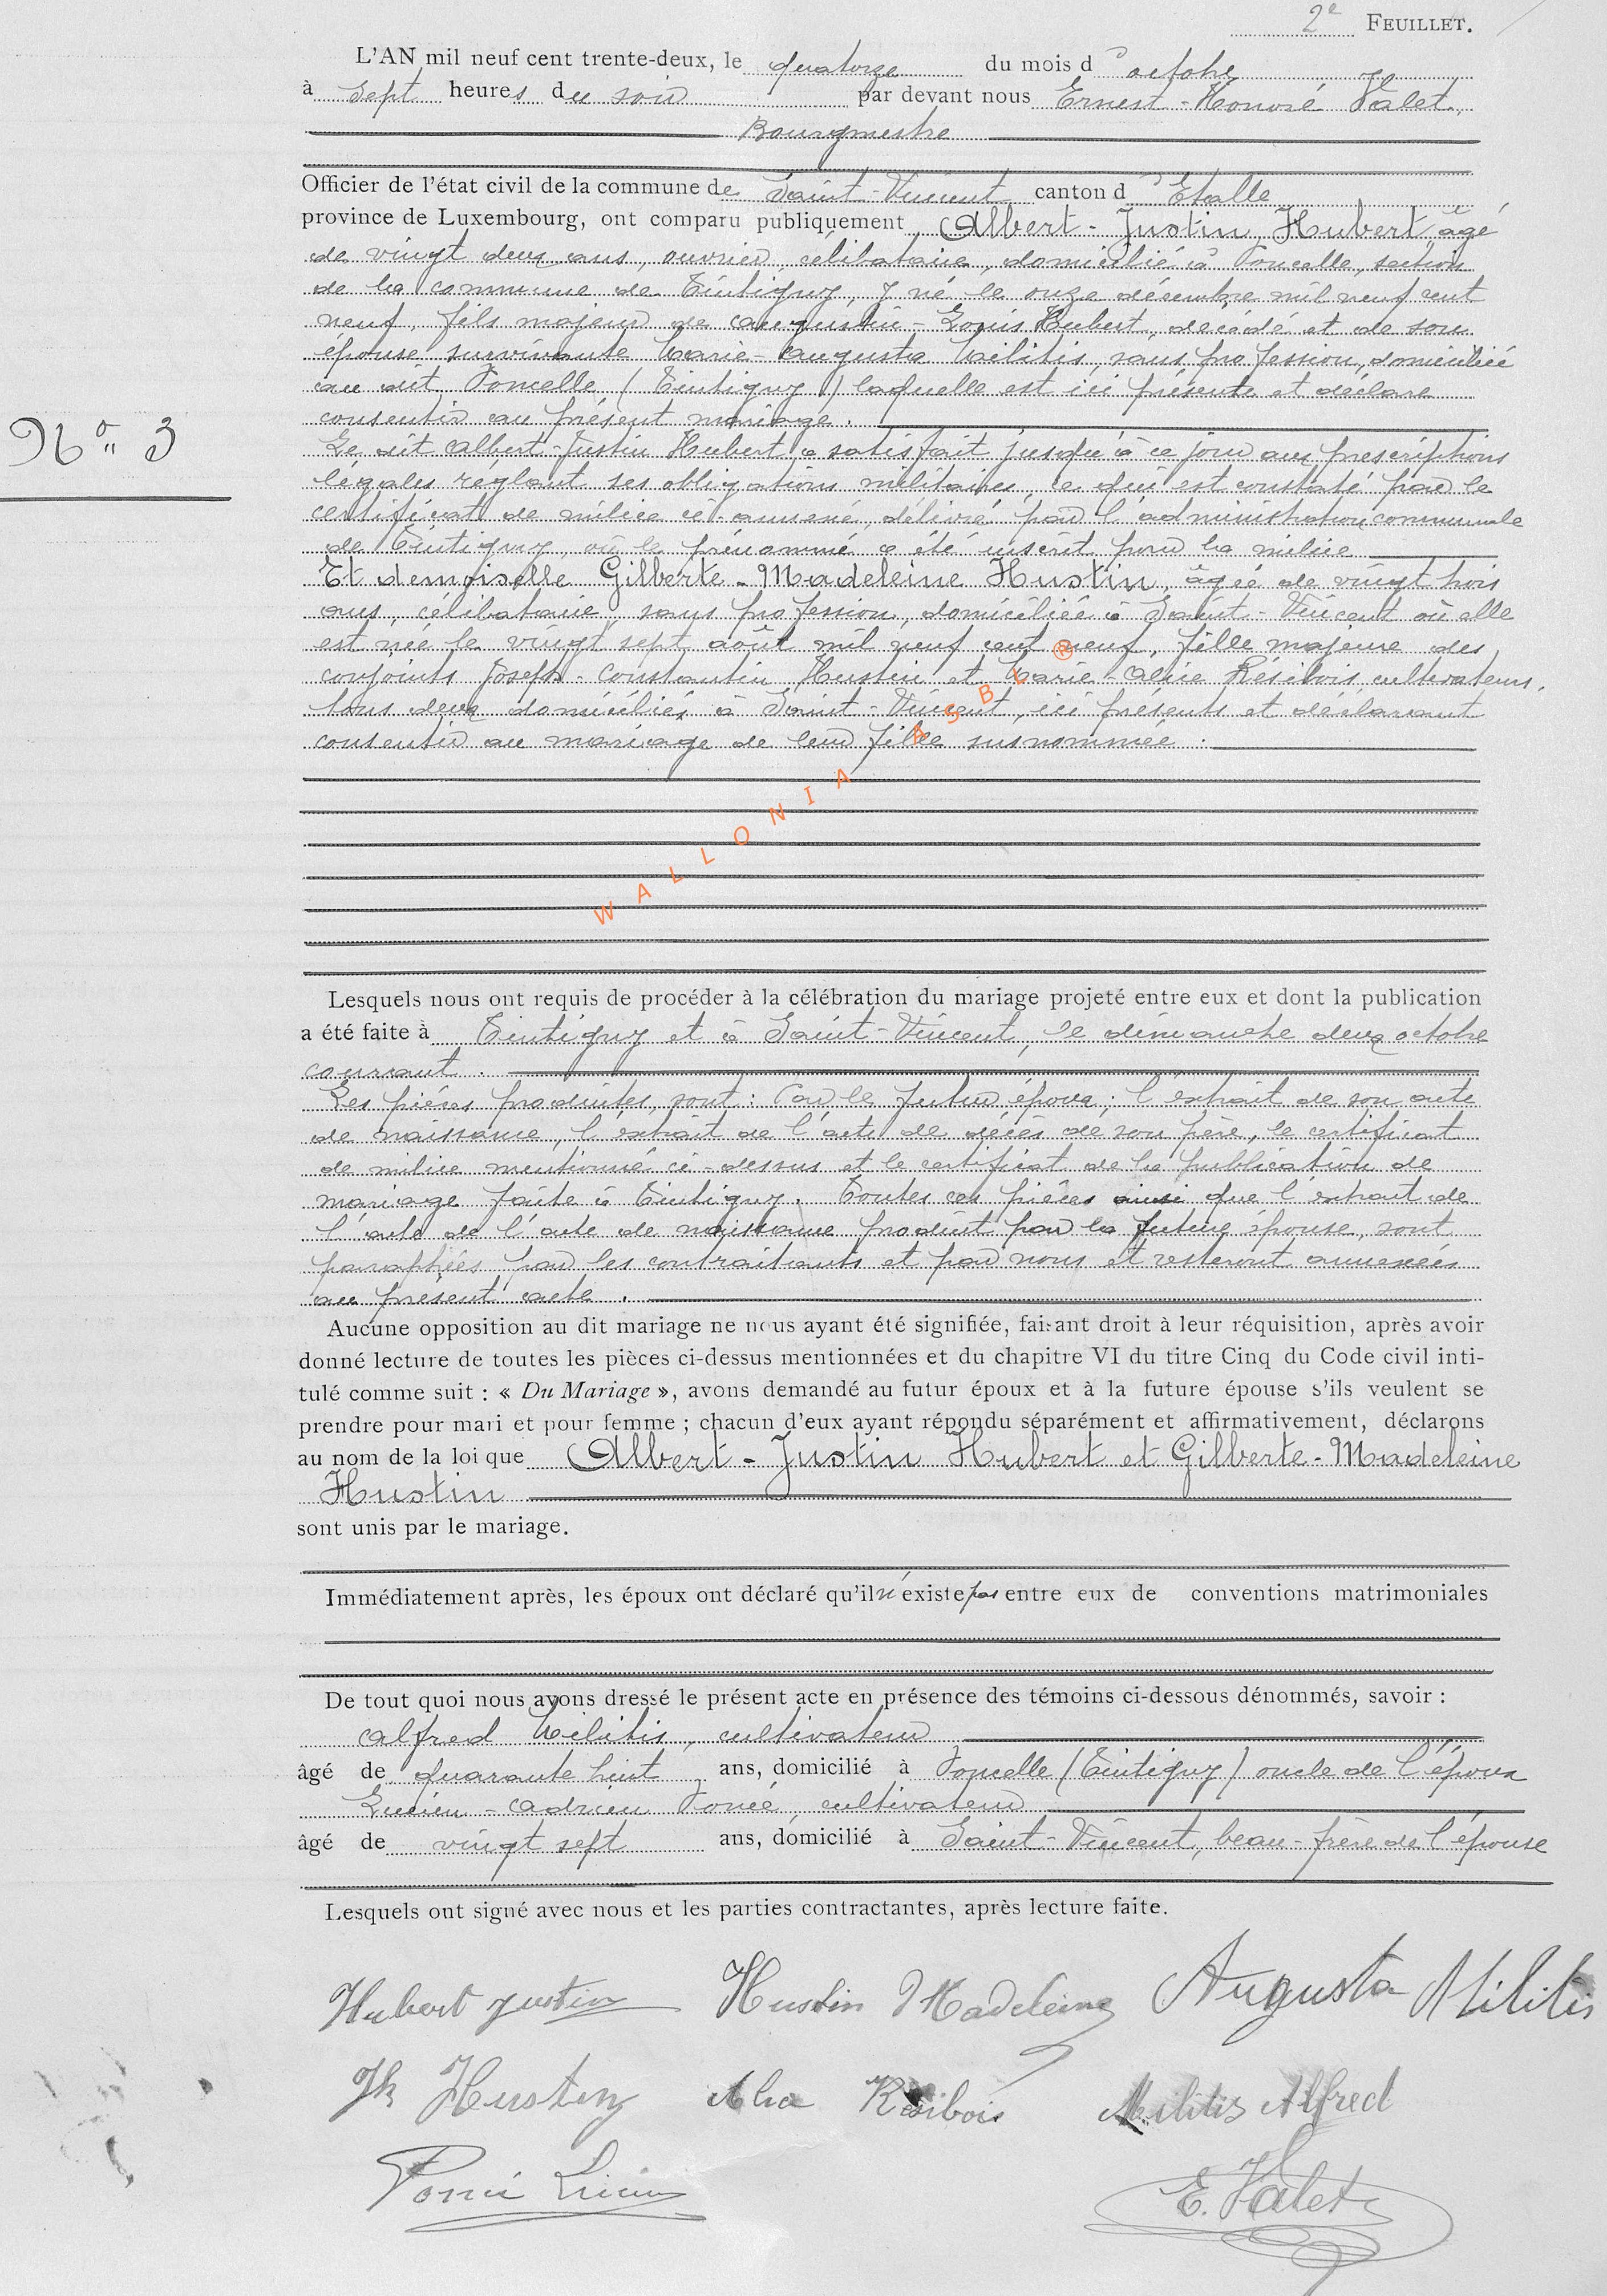 2e FEUILLET.
L'AN mil neuf cent trente-deux, le quatorze du mois d'octobre
à sept heures du soir par devant nous Ernest-Honoré Valet,
Bourgmestre
Officier de l'état civil de la commune de Saint-Vincent canton d'Etalle
province de Luxembourg, ont comparu publiquement Albert-Justin Hubert âgé
de vingt deux ans, ouvrier, célibataire, domicilié à Poncelle, section
de la commune de Tintigny, y né le onze décembre mil neuf cent
neuf, fils majeur de Augustin-Louis Hubert, décédé et de son
épouse survivante Marie-Augusta Militis, sans profession, domiciliée
au dit Poncelle (Tintigny) laquelle est ici présente et déclare
consentir au présent mariage.
No 3
Le dit Albert-Justin Hubert a satisfait jusqu'à ce jour aux prescriptions
légales réglant ses obligations militaires, ce qui est constaté par le
certificat de milice ci-annexé, délivré par l'administration communale
de Tintigny, où le prénommé a été inscrit pour la milice
Et demoiselle Gilberte-Madeleine Hustin, âgée de vingt trois
ans, célibataire, sans profession, domiciliée à Saint-Vincent où elle
est née le vingt sept août mil neuf cent neuf, fille majeure des
conjoints Joseph-Constantin Hustin et Marie-Alice Résibois, cultivateurs,
tous deux domiciliés à Saint-Vincent, ici présents et déclarant
consentir au mariage de leur fille susnommée.
WALLONIA ASBL ®
Lesquels nous ont requis de procéder à la célébration du mariage projeté entre eux et dont la publication
a été faite à Tintigny et à Saint-Vincent, le dimanche deux octobre
courant.
Les pièces produites, sont: Par le futur époux; l'extrait de son acte
de naissance, l'extrait de l'acte de décès de son père, le certificat
de milice mentionné ci-dessus et le certificat de la publication de
mariage faite à Tintigny. Toutes ces pièces ainsi que l'extrait de
l'acte de l'acte de naissance produit par la future épouse, sont
paraphées par les contractants et par nous et resteront annexées
au présent acte.
Aucune opposition au dit mariage ne nous ayant été signifiée, faisant droit à leur réquisition, après avoir
donné lecture de toutes les pièces ci-dessus mentionnées et du chapitre VI du titre Cinq du Code civil inti-
tulé comme suit : « Du Mariage », avons demandé au futur époux et à la future épouse s'ils veulent se
prendre pour mari et pour femme ; chacun d'eux ayant répondu séparément et affirmativement, déclarons
au nom de la loi que Albert-Justin Hubert et Gilberte-Madeleine
Hustin
sont unis par le mariage.
Immédiatement après, les époux ont déclaré qu'il n'existe pas entre eux de conventions matrimoniales
De tout quoi nous avons dressé le présent acte en présence des témoins ci-dessous dénommés, savoir :
Alfred Militis, cultivateur
âgé de quarante huit ans, domicilié à Poncelle (Tintigny) oncle de l'époux
Lucien-Adrien Poncé, cultivateur
âgé de vingt sept ans, domicilié à Saint-Vincent, beau-frère de l'épouse
Lesquels ont signé avec nous et les parties contractantes, après lecture faite.
Hubert Justin Hustin Madeleine Augusta Militis
Jh Hustin Alice Résibois Militis Alfred
Lucien E. Valet